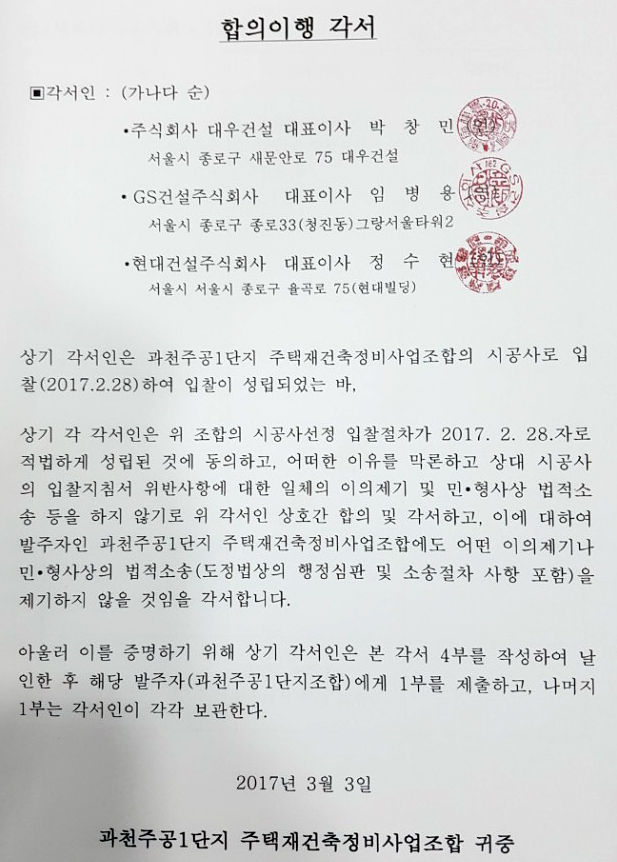 합의이행 각서
▣각서인 : (가나다 순)
•주식회사 대우건설 대표이사 박 창 민
서울시 종로구 새문안로 75 대우건설
• GS건설주식회사 대표이사 임 병 용
서울시 종로구 종로33(청진동)그랑서울타워2
•현대건설주식회사 대표이사 정 수 현
서울시 서울시 종로구 율곡로 75(현대빌딩)
상기 각서인은 과천주공1단지 주택재건축정비사업조합의 시공사로 입
찰(2017.2.28)하여 입찰이 성립되었는 바,
상기 각 각서인은 위 조합의 시공사선정 입찰절차가 2017. 2. 28.자로
적법하게 성립된 것에 동의하고, 어떠한 이유를 막론하고 상대 시공사
의 입찰지침서 위반사항에 대한 일체의 이의제기 및 민•형사상 법적소
송 등을 하지 않기로 위 각서인 상호간 합의 및 각서하고, 이에 대하여
발주자인 과천주공1단지 주택재건축정비사업조합에도 어떤 이의제기나
민•형사상의 법적소송(도정법상의 행정심판 및 소송절차 사항 포함)을
제기하지 않을 것임을 각서합니다.
아울러 이를 증명하기 위해 상기 각서인은 본 각서 4부를 작성하여 날
인한 후 해당 발주자(과천주공1단지조합)에게 1부를 제출하고, 나머지
1부는 각서인이 각각 보관한다.
2017년 3월 3일
과천주공1단지 주택재건축정비사업조합 귀중